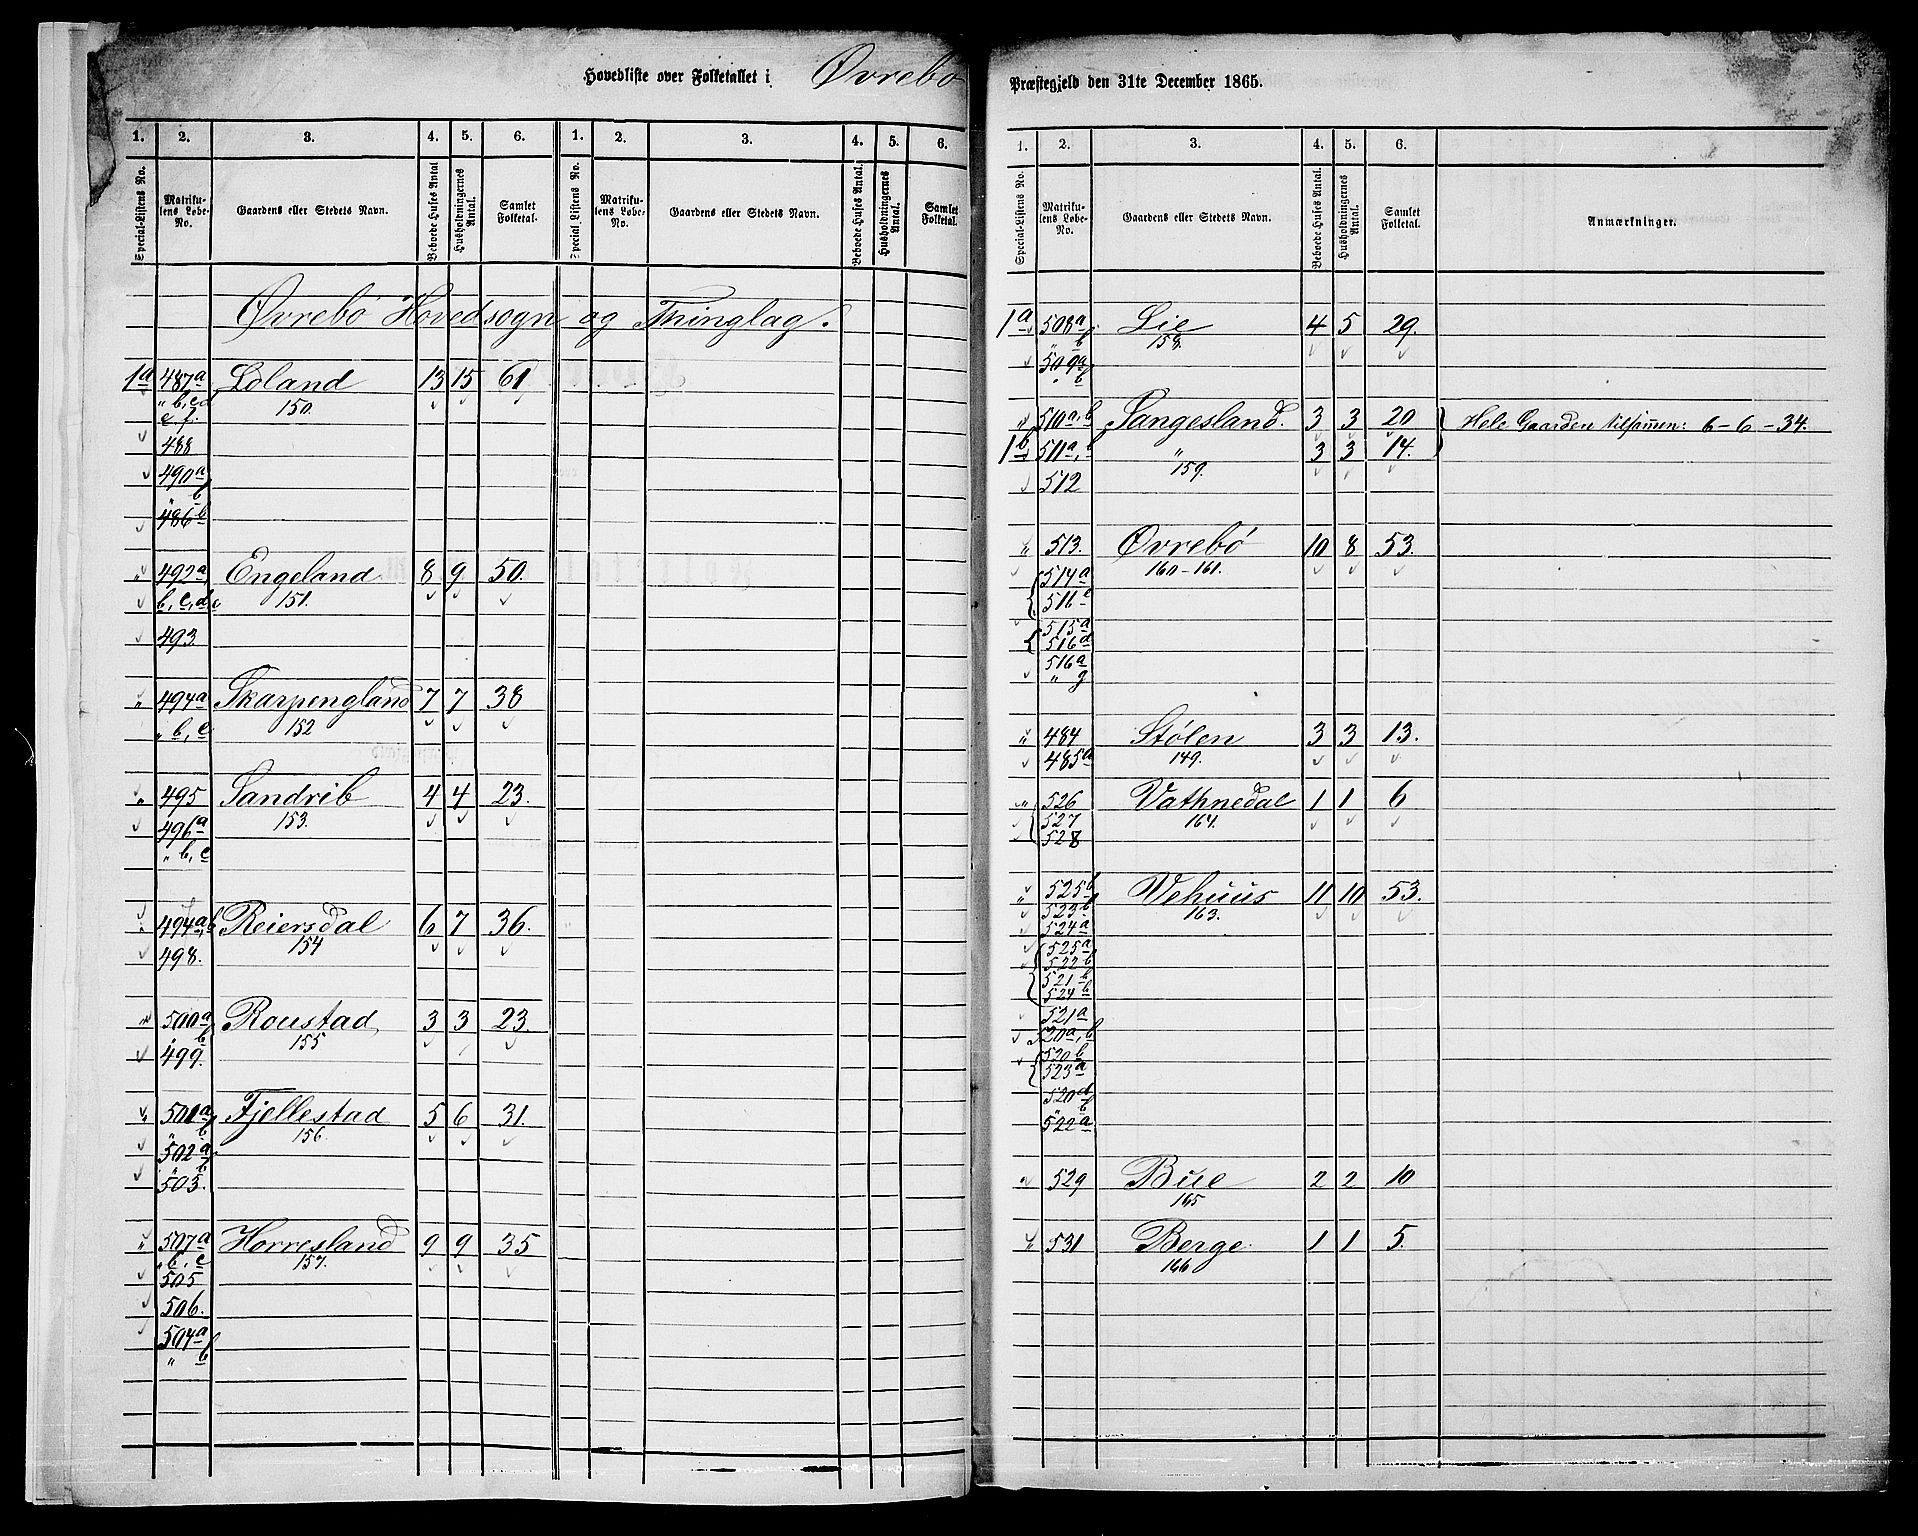 Hovedliste over Folketallet i Øvrebö
Præstegjeld den 31te December 1865.
1. 2. 3. 4. 5. 6. 1. 2. 3. 4. 5. 6.
Special-Listens No. Matrikulens Løbe-No. Gaardens eller Stedets Navn. Beboede Huses Antal Husholdningernes Antal. Samlet Folketal. Special Listens No. Matrikulens Løbe-No. Gaardens eller Stedets Navn. Beboede Huses Antal. Husholdningernes Antal. Samlet Folketal.
Øvrebö Hovedsogn og Thinglag.
1a 487a Loland 13 15 61
" b, c d 150.
e. f.
488
490a
" b
486b
" 492a, Engeland 8 9 50.
b, c, d 151.
493
" 494a Skarpengland 7 7 38
" b, c 152
" 495 Sandrib 4 4 23.
496a 153.
" b, c
" 494a, b Reiersdal 6 7 36.
498. 154
" 500a Roustad 3 3 23.
" b 155
499.
" 501a Fjellestad 5 6 31.
" b 156.
502a
" b
503.
" 507a Horresland 9 9 35
" b, c 157.
505
506.
504a
" b
1. 2. 3. 4. 5. 6.
Special-Listens No. Matrikulens Løbe-No. Gaardens eller Stedets Navn. Beboede Huses Antal. Husholdningernes Antal. Samlet Folketal. Anmærkninger.
1a 508a. Lie 4 5 29.
" b 158.
509a
" b
" 510a, b Sangesland. 3 3 20 } Hele Gaarden tilsammen: 6 - 6 - 34.
1b 511a, b " 3 3 14.
512 159.
" 513. Øvrebö 10 8 53.
514a 160-161.
516c
515a
516d
516a
" g
" 484 Stølen 3 3 13.
485a 149.
" 526 Vathnedal 1 1 6
527 164.
528
" 525b Vehuus 11 10 53.
523b 163.
524a
525a
522b
521b
524b
521a
520a, b
520b
523a
520d
" b
522a
" 529 Bue 2 2 10
165
" 531 Berge 1 1 5.
166